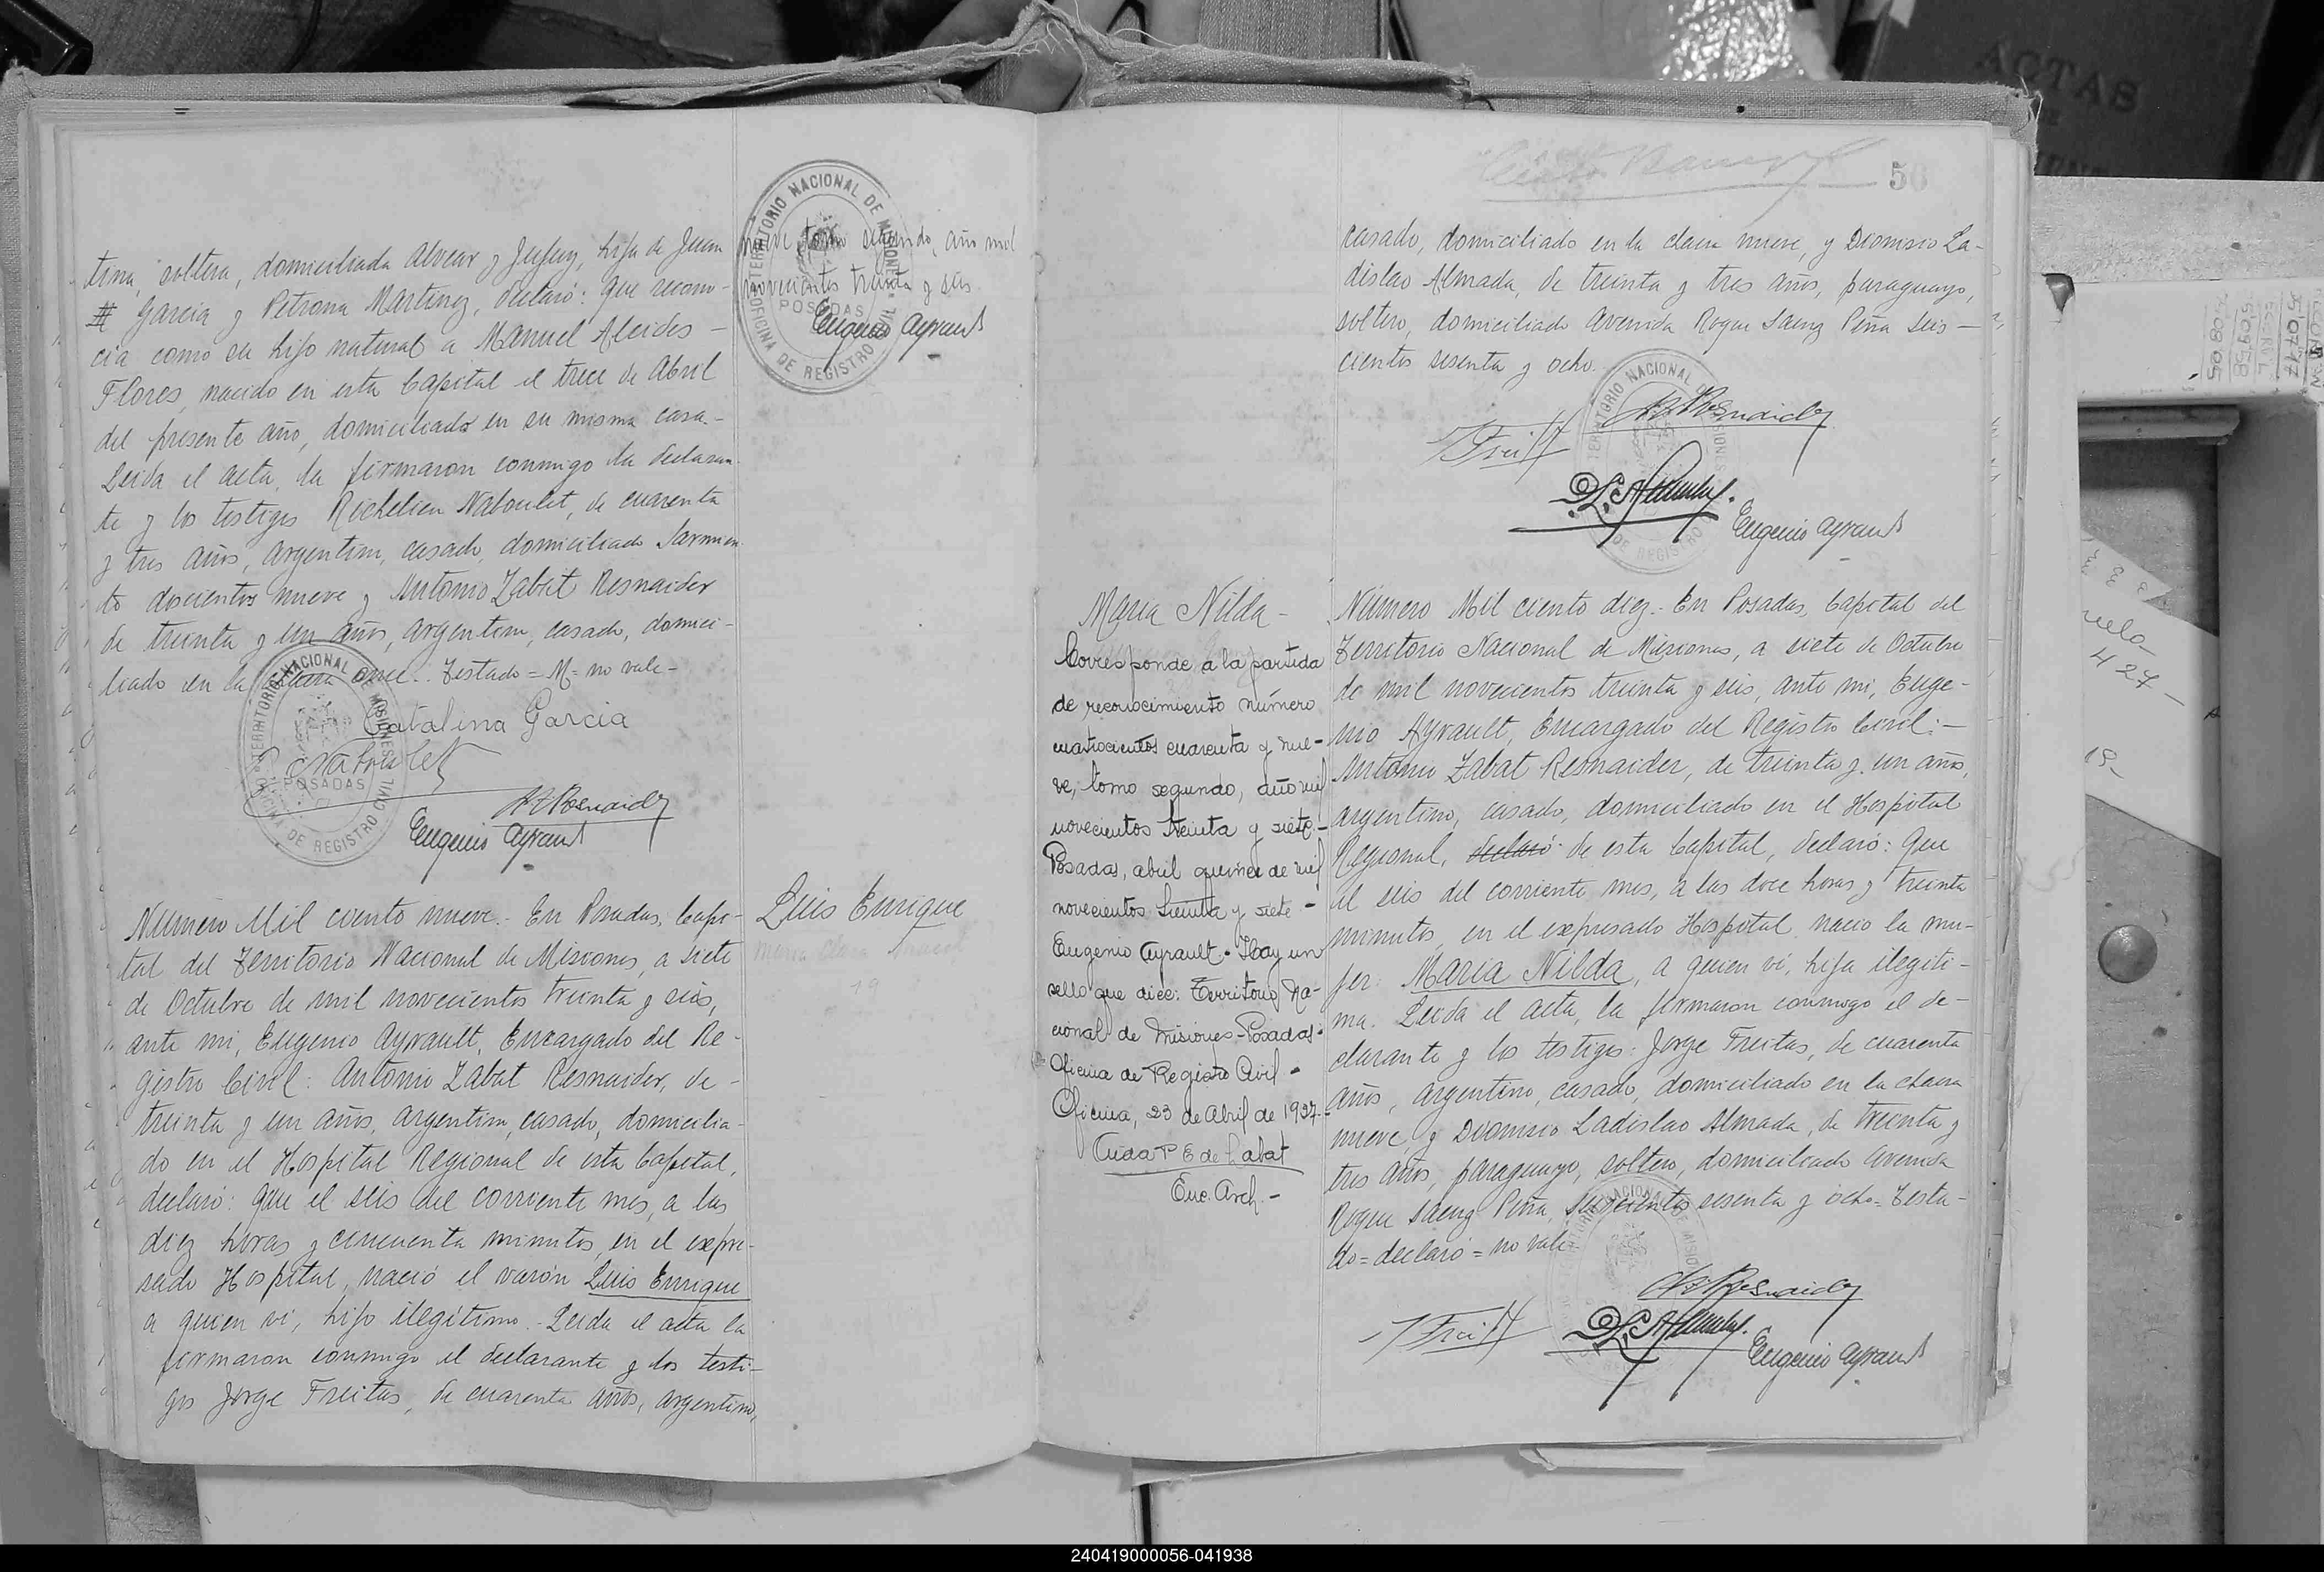 tina, soltera, domiciliada Alvear y Jujuy, hija de Juan
M García y Petrona Martinez, declaró: Que recono-
cia como su hijo natural a Manuel Alcides -
Flores, nacido en esta Capital el trece de Abril
del presente año, domiciliado en su misma casa.-
Leida el acta, la firmaron conmigo la declaran-
te y los testigos Richelieu Naboulet, de cuarenta
y tres años, argentino, casado, domiciliado Sarmien-
to docientos nueve y Antonio Zabat Resnaider
de treinta y un años, argentino, casado, domici-
liado en la chacra once.: Testado = M = no vale -
Catalina Garcia
RNaboulet
AZResnaider
Eugenio Ayrault
TERRITORIO NACIONAL DE MISIONES
POSADAS
OFICINA DE REGISTRO CIVIL
nueve, tomo segundo, año mil
novecientos treinta y seis.
Eugenio Ayrault
TERRITORIO NACIONAL DE MISIONES
POSADAS
OFICINA DE REGISTRO CIVIL
Número Mil ciento nueve.- En Posadas, Capi-
tal del Territorio Nacional de Misiones, a siete
de Octubre de mil novecientos treinta y seis,
ante mi, Eugenio Ayrault, Encargado del Re-
gistro Civil: Antonio Zabat Resnaider, de -
treinta y un años, argentino, casado, domicilia-
do en el Hospital Regional de esta Capital,
declaró: Que el seis del corriente mes, a las
diez horas y cincuenta minutos, en el expre-
sado Hospital, nació el varón Luis Enrique
a quien vi, hijo ilegítimo.- Leida el acta la
firmaron conmigo el declarante y los testi-
gos Jorge Freitas, de cuarenta años, argentino,
Luis Enrique
19
50
casado, domiciliado en la chacra nueve, y Dionisio La-
dislao Almada, de treinta y tres años, paraguayo,
soltero, domiciliado Avenida Roque Saenz Peña seis -
cientos sesenta y ocho.
TERRITORIO NACIONAL DE MISIONES
DE REGISTRO
AZResnaider
JFreitas
D.L.Almada.
Eugenio Ayrault
Maria Nilda -
Corresponde a la partida
de reconocimiento número
cuatrocientos cuarenta y nue-
ve, tomo segundo, año mil
novecientos treinta y siete.-
Posadas, abril quince de mil
novecientos treinta y siete -
Eugenio Ayrault - Hay un
sello que dice: Territorio Na-
cional de Misiones - Posadas -
Oficina de Registro Civil -
Oficina, 23 de Abril de 1937.-
de Labat
Enc. Arch.-
Número Mil ciento diez.- En Posadas, Capital del
Territorio Nacional de Misiones, a siete de Octubre
de mil novecientos treinta y seis, ante mi, Euge-
nio Ayrault, Encargado del Registro Civil: -
Antonio Zabat Resnaider, de treinta y un años,
argentino, casado, domiciliado en el Hospital
Regional, declaró de esta Capital, declaró: Que
el seis del corriente mes, a las doce horas y treinta
minutos, en el expresado Hospital, nació la mu-
jer: Maria Nilda, a quien vi, hija ilegíti-
ma. Leida el acta, la firmaron conmigo el de-
clarante y los testigos: Jorge Freitas, de cuarenta
años, argentino, casado, domiciliado en la chacra
nueve, y Dionisio Ladislao Almada, de treinta y
tres años, paraguayo, soltero, domiciliado Avenida
Roque Saenz Peña, seiscientos sesenta y ocho.- Testa-
do = declaró = no vale.-
AZResnaider
JFreitas
D.L.Almada.
Eugenio Ayrault
ACTAS
427
19-
240419000056-041938